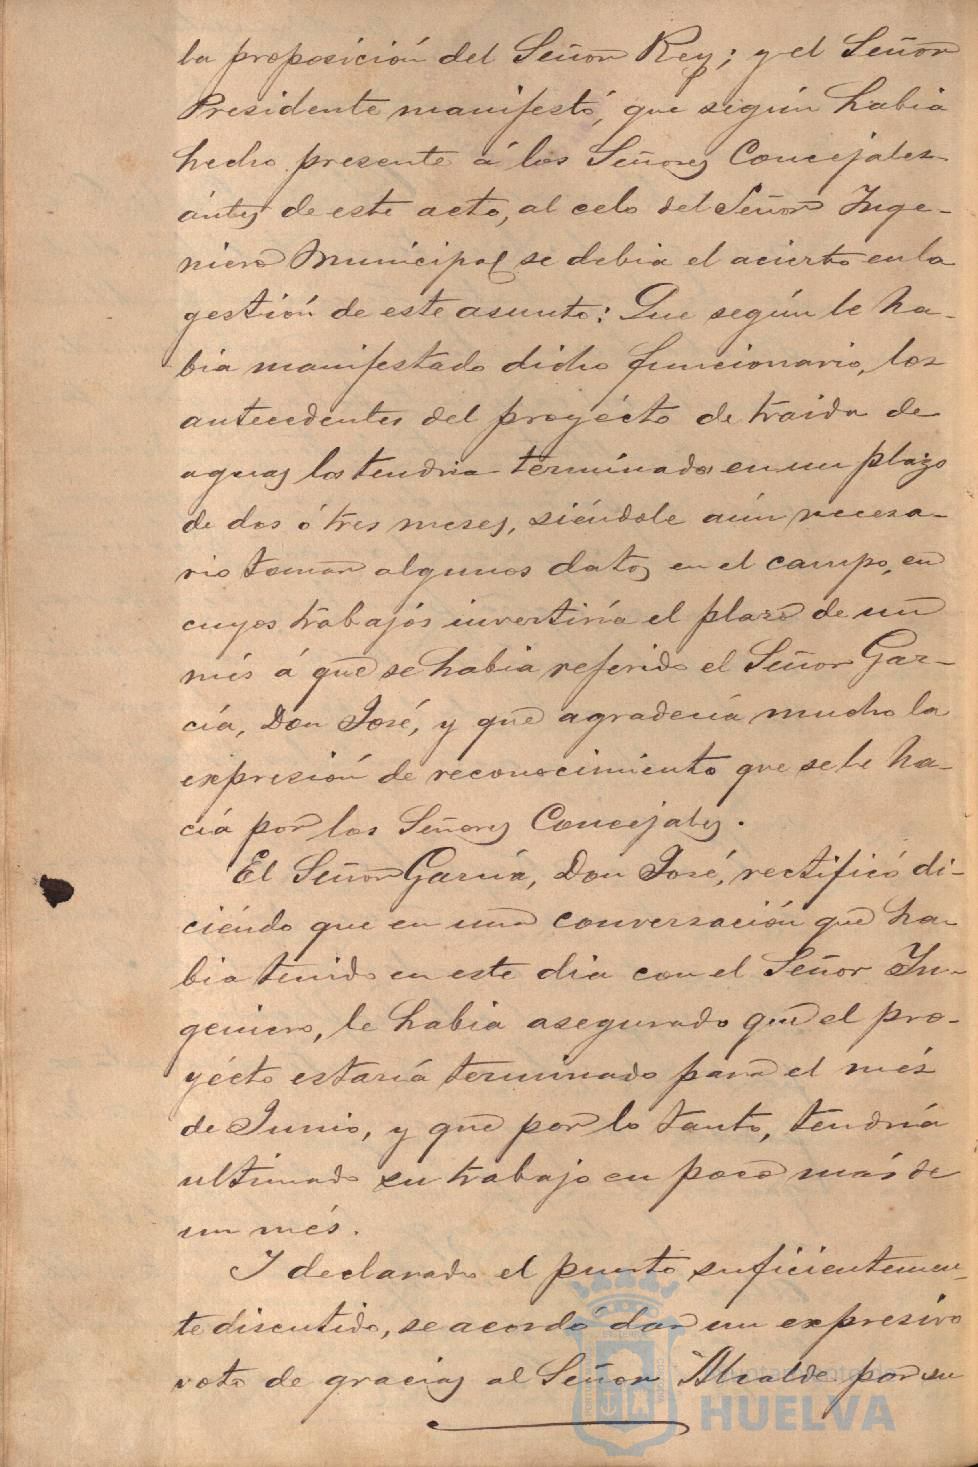 la proposición del Señor Rey; y el Señor
Presidente manifestó, que según habia
hecho presente á los Señores Concejales
ántes de este acto, al celo del Señor Inge-
niero Municipal se debia el acierto en la
gestión de este asunto: Que según le ha-
bia manifestado dicho funcionario, los
antecedentes del proyécto de traida de
aguas los tendria terminados en un plazo
de dos ó tres meses, siéndole aún necesa-
rio tomar algunos datos en el campo, en
cuyos trabajos invertiría el plazo de un
més á que se habia referido el Señor Gar-
cía, Don José, y que agradecía mucho la
expresión de reconocimiento que se le ha-
cía por los Señores Concejales.
El Señor García, Don José, rectificó di-
ciéndo que en una conversación que ha-
bia tenido en este dia con el Señor In-
geniero, le habia asegurado que el pro-
yécto estaría terminado para el més
de Junio, y que por lo tanto, tendría
ultimado su trabajo en poco más de
un més.
Y declarado el punto suficientemen-
te discutido, se acordó dar un expresivo
voto de gracias al Señor Alcalde por su
Ayuntamiento de
HUELVA